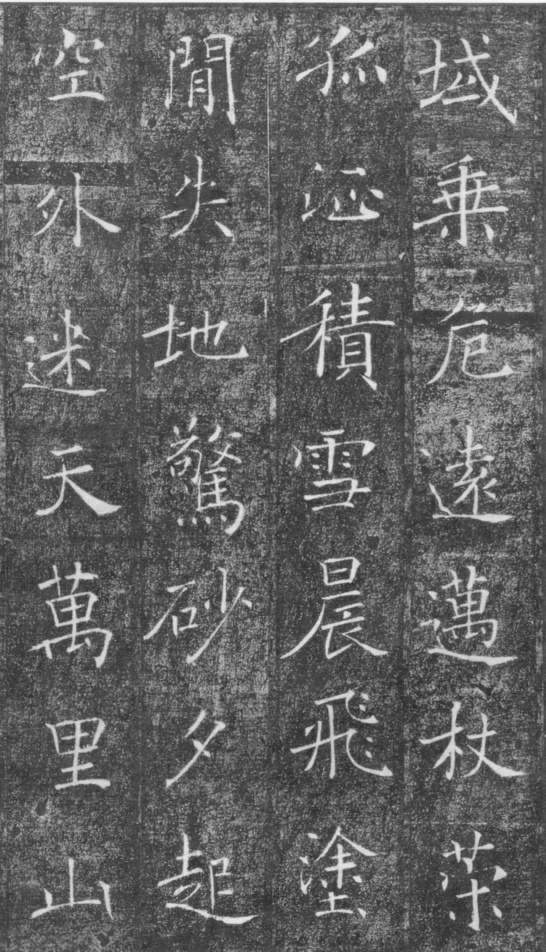 域乗危遠邁杖荣
孤征積雪晨飛塗
閒失地驚砂夕起
空外迷天萬里山